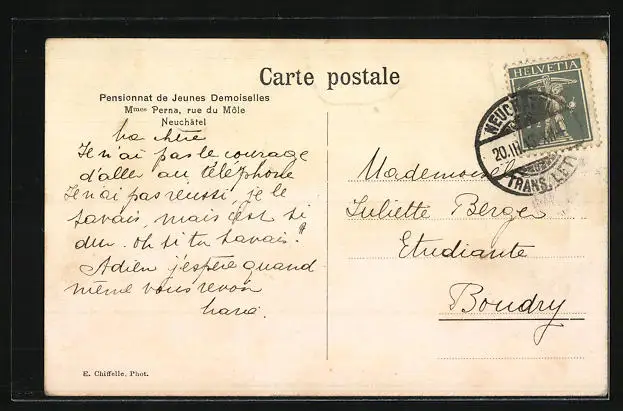 Carte postale
Pensionnat de Jeunes Demoiselles
Mmes Perna, rue du Môle
Neuchâtel
Ma chère
Je n'ai pas le courage
d'alle au téléphone
Je n'ai pas réussi, je le
savais, mais c'est si
dur. Oh si tu savais!
Adieu j'espère quand
même vous revoir
HELVETIA
NEUCH
20.III
TRANS. LET
Mademoisel
Juliette Berger
Etudiante
Boudry
E. Chiffelle, Phot.